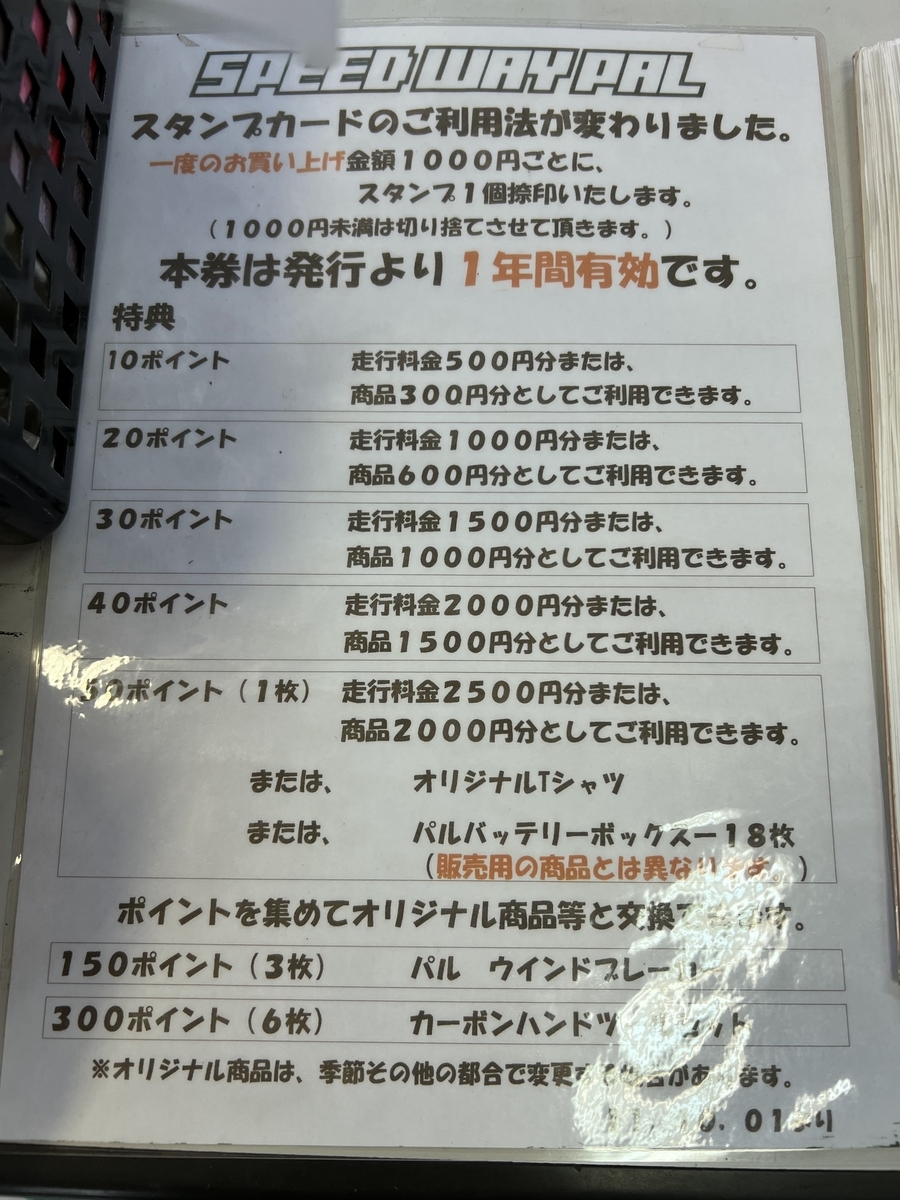 SPEED WAY PAL
スタンプカードのご利用法が変わりました。
一度のお買い上げ金額１０００円ごとに、
スタンプ１個捺印いたします。
（１０００円未満は切り捨てさせて頂きます。）
本券は発行より１年間有効です。
特典
１０ポイント　走行料金５００円分または、
商品３００円分としてご利用できます。
２０ポイント　走行料金１０００円分または、
商品６００円分としてご利用できます。
３０ポイント　走行料金１５００円分または、
商品１０００円分としてご利用できます。
４０ポイント　走行料金２０００円分または、
商品１５００円分としてご利用できます。
５０ポイント（１枚）　走行料金２５００円分または、
商品２０００円分としてご利用できます。
または、　オリジナルTシャツ
または、　パルバッテリーボックスー１８枚
（販売用の商品とは異なります。）
ポイントを集めてオリジナル商品等と交換できます。
１５０ポイント（３枚）　パル　ウインドブレーカー
３００ポイント（６枚）　カーボンハンドツールセット
※オリジナル商品は、季節その他の都合で変更する場合があります。
０１より